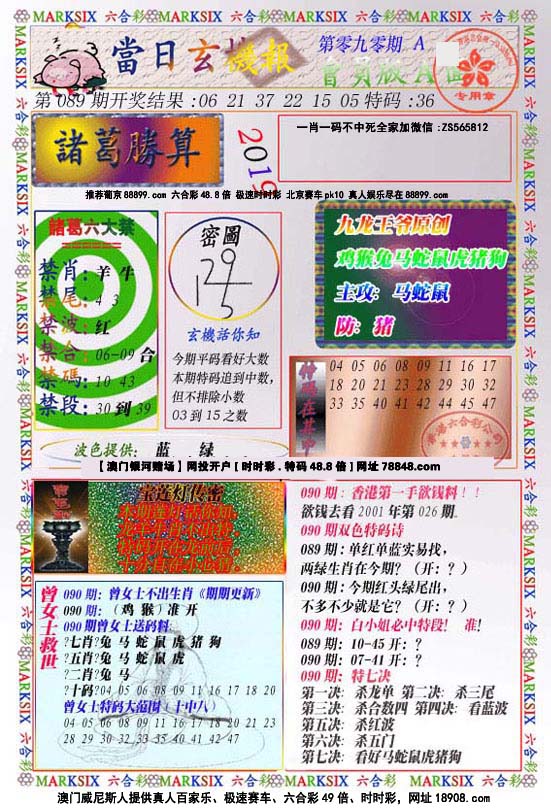 MARKSIX 六合彩 MARKSIX 六合彩 MARKSIX 六合彩 MARKSIX 六合彩 MARKSIX
當日玄機報
第零九零期 A
會員版
专用章
第 089 期开奖结果 :06 21 37 22 15 05 特码 :36
諸葛勝算
2019
一肖一码不中死全家加微信 :ZS565812
推荐葡京 88899. com 六合彩 48. 8 倍 极速时时彩 北京赛车 pk10 真人娱乐尽在 88899. com
諸葛六大禁
禁肖: 羊 牛
禁尾: 4 3
禁波: 红
禁合: 06-09 合
禁碼: 10 43
禁段: 30 到 39
密圖
玄機話你知
今期平码看好大数
本期特码追到中数,
但不排除小数
03 到 15 之数
九龙王爷原创
鸡猴兔马蛇鼠虎猪狗
主攻: 马蛇鼠
防: 猪
特码在其中
04 05 06 08 09 11 16 17
18 20 21 23 28 29 30 32
33 35 40 41 42 44 45 47
波色提供: 蓝 . 绿
【 澳门银河赌场 】 网投开户 [ 时时彩 . 特码 48.8 倍 ] 网址 78848.com
宝莲灯传密
曾女士救世
090 期: 曾女士不出生肖《期期更新》
090 期: (鸡 猴) 准 开
090 期曾女士送码料:
?七肖?兔 马 蛇 鼠 虎 猪 狗
?五肖?兔 马 蛇 鼠 虎
?二肖?兔 马
?十码?04 05 06 08 09 11 16 17 18 20
曾女士特码大范围 (十中八)
04 05 06 08 09 11 16 17 18 20 21 23
28 29 30 32 33 35 40 41 42 47
090 期: 香港第一手欲钱料!!
欲钱去看 2001 年第 026 期.
090 期双色特码诗
089 期: 单红单蓝实易找,
两绿生肖在今期? (开: ? )
090 期: 今期红头绿尾出,
不多不少就是它? (开: ? )
090 期: 白小姐必中特段! 准!
089 期: 10-45 开: ?
090 期: 07-41 开: ?
090 期: 特七决
第一决: 杀龙单 第二决: 杀三尾
第三决: 杀合数四 第四决: 看蓝波
第五决: 杀红波
第六决: 杀五门
第七决: 看好马蛇鼠虎猪狗
MARKSIX 六合彩 MARKSIX 六合彩 MARKSIX 六合彩 MARKSIX 六合彩 MARKSIX
澳门威尼斯人提供真人百家乐、极速赛车、六合彩 49 倍、时时彩, 网址 18908. com